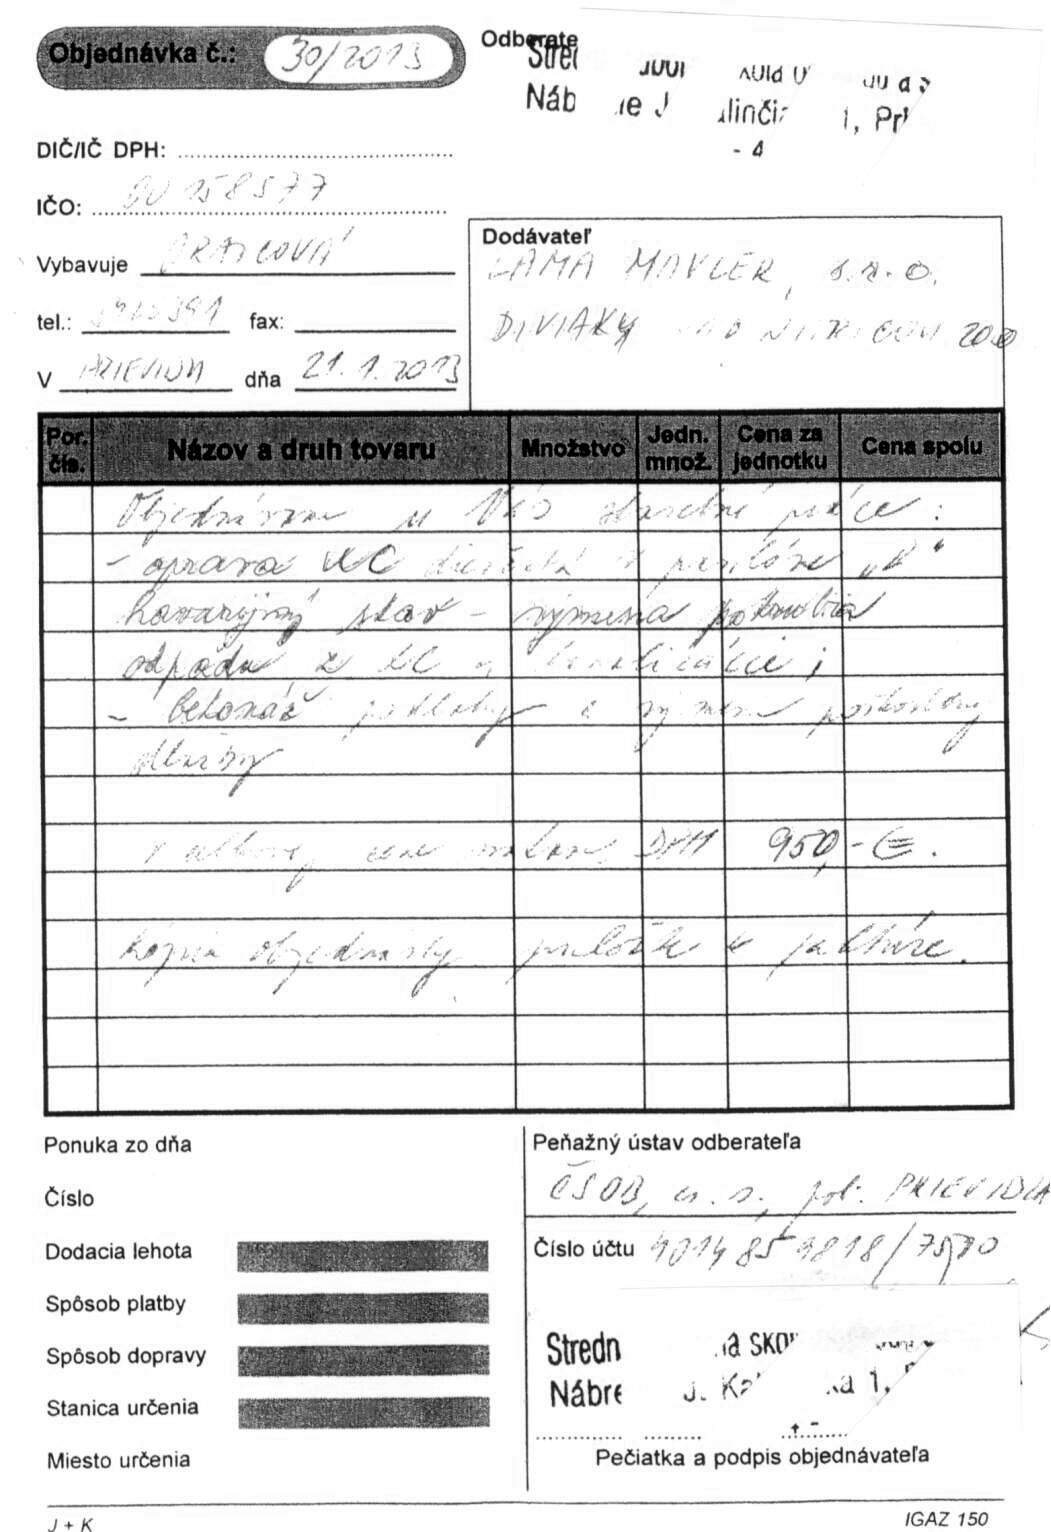 Objednávka č.: 30/2013
Odberate
Náb
DIČ/IČ DPH:
IČO: 00158577
Vybavuje
tel.: fax:
V PRIEVIDZA dňa 21.1.2013
Dodávateľ
LAMA MAVLER, s.r.o.
DIVIAKY NAD NITRICOU 200
Por. čís. Názov a druh tovaru Množstvo Jedn. množ. Cena za jednotku Cena spolu
Objednávam u Vás stavebné práce:
- oprava WC v pavilóne
havarijný stav - výmena potrubia
odpadu z WC kanalizácie;
- betonáž podlahy a výmena
dlažby
v celkovej cene vrátane DPH 950,- €.
Kópiu objednávky priložte k faktúre.
Ponuka zo dňa
Číslo
Dodacia lehota
Spôsob platby
Spôsob dopravy
Stanica určenia
Miesto určenia
Peňažný ústav odberateľa
ČSOB, a. s., pob. PRIEVIDZA
Číslo účtu
Stredn
Nábre 1,
Pečiatka a podpis objednávateľa
J + K
IGAZ 150